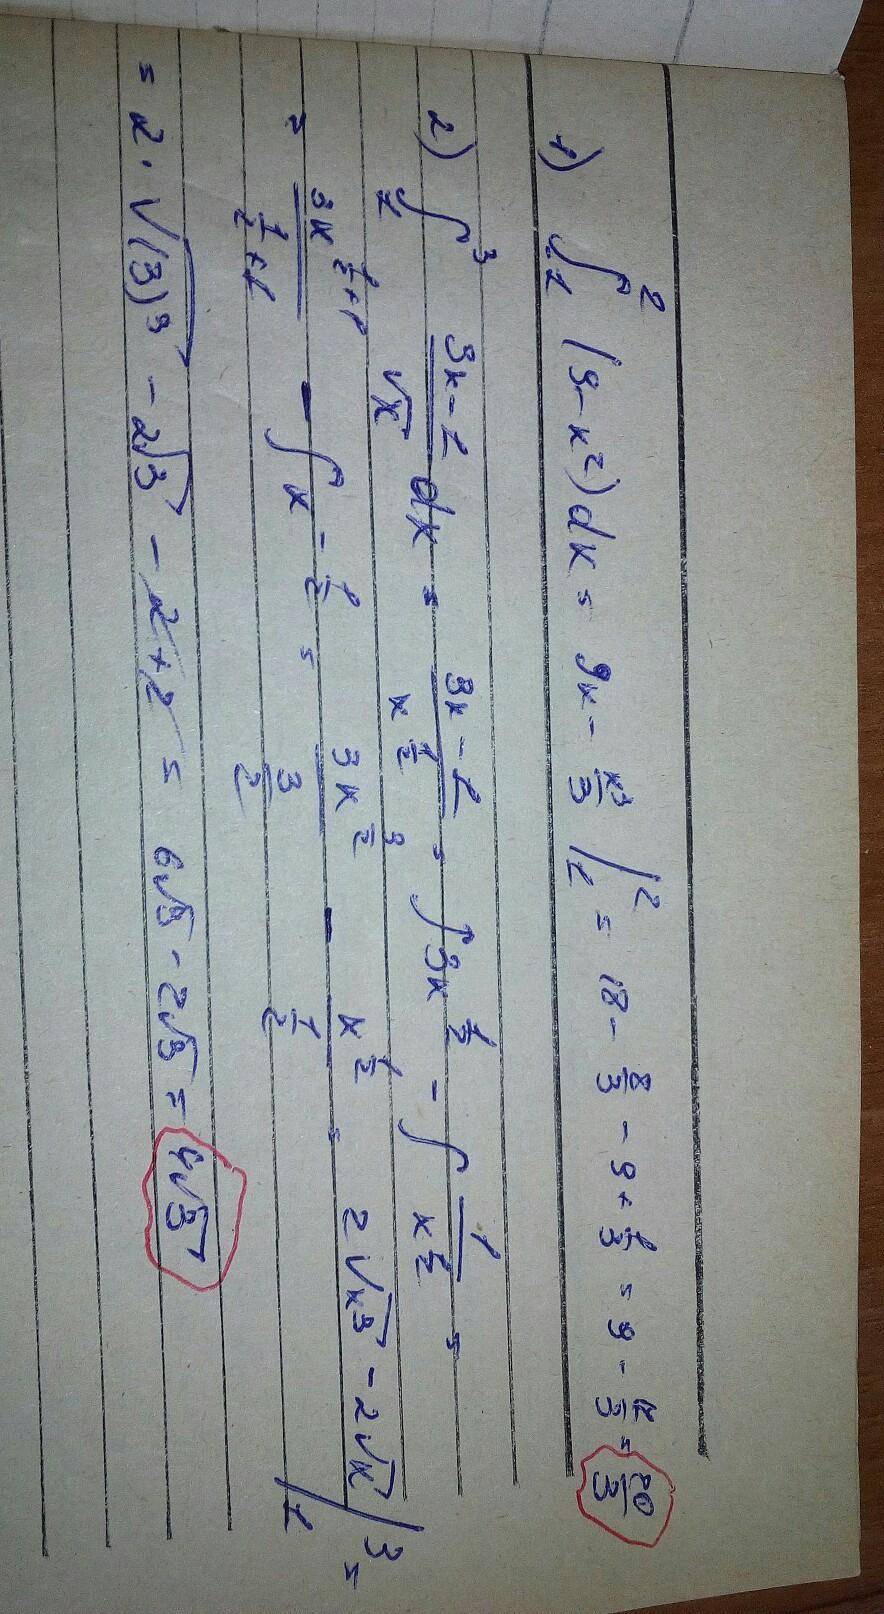 1) ∫₁² (9-x²)dx = 9x - x³/3 |₁² = 18 - 8/3 - 9 + 1/3 = 9 - 7/3 = 20/3
2) ∫₁³ (3x-1)/√x dx = (3x-1)/x^(1/2) = ∫3x^(1/2) - ∫ 1/x^(1/2) =
= 3x^(1/2+1)/(1/2+1) - ∫x^(-1/2) = 3x^(3/2)/(3/2) - x^(1/2)/(1/2) = 2√x³ - 2√x |₁³ =
= 2·√(3)³ - 2√3 - 2+2 = 6√3 - 2√3 = 4√3